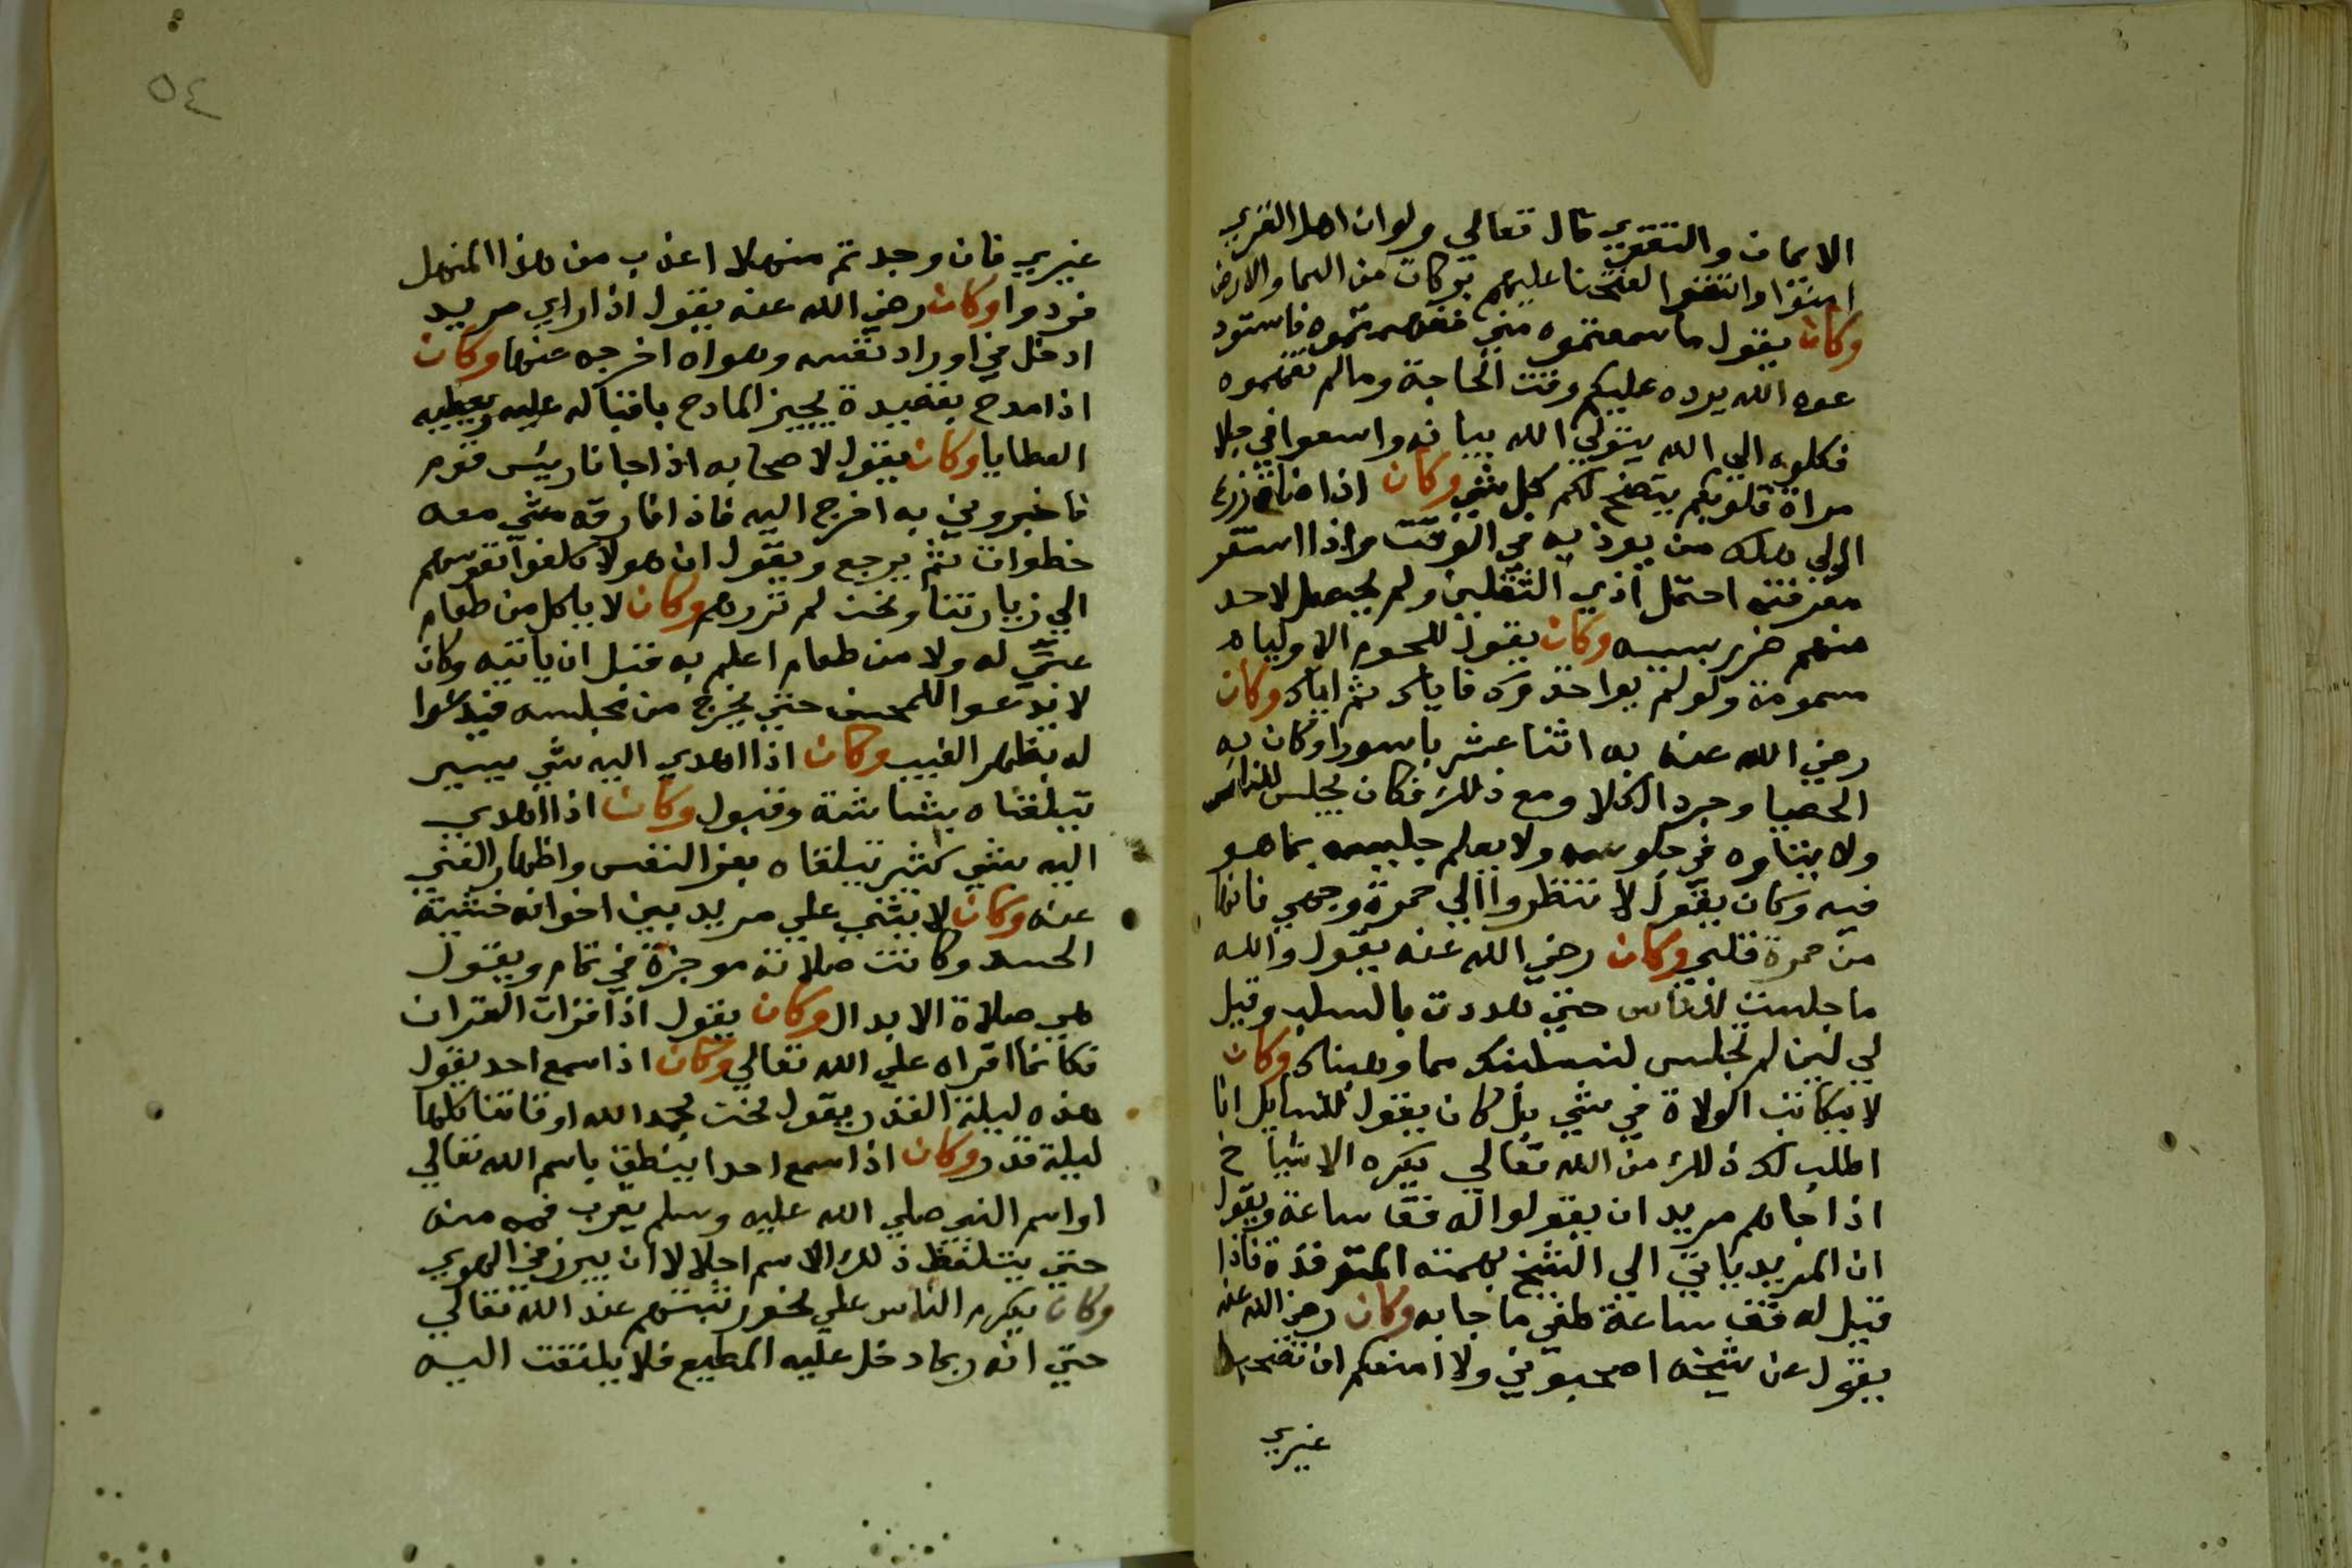 الايمان والتقوي قال تعالي ولوان اهل القري
امنوا واتقوا لفتحنا عليهم بركات من السما والارض
وكان يقول ما سمعتموه مني ففهمتموه فاستود
عوه الله يرده عليكم وقت الحاجة ومالم تفهموه
فكلوه الي الله يتولي الله بيانه واسعوا في جلا
مراة قلوبكم يتضح لكم كل شي وكان اذا ضاق
الولي هلك من يوذيه في الوقت واذا استقر
معرفته احتمل اذي الثقلين ولم يحصل لاحد
منهم ضرر بسببه وكان يقول للحوم الاولياء
سمومة ولو لم يواخذوك فاياك ثم اياك وكان
رضي الله عنه به اثنا عشر باسورا وكان به
الحصيا وبرد الكلا ومع ذلك فكان يجلس للناس
ولا يتناوه في جلوسه ولا يعلم جليسه بما هو
فيه وكان يقول لا تنظروا الي حمرة وجهي فانها
من حمرة قلبي وكان رضي الله عنه يقول والله
ما جلست للناس حتي هددت بالسلب وقيل
لي لين لم تجلس لنسلبنك ما وهبناك وكان
لا يكاتب الولاة في شي بل كان يقول للسايل انا
اطلب لك ذلك من الله تعالي يكره الاشياخ
اذا جاهم مريد ان يقولوا له قف ساعة ويقول
ان المريد ياتي الي الشيخ بهمته المتوقدة فاذا
قيل له قف ساعة طفي ما جا به وكان رضي الله عنه
يقول عن شيخه اصحبوني ولا امنعكم ان تصحبوا
غيري
٥٤
غيري فان وجدتم منهلا اعذب من هذا المنهل
فردوا وكان رضي الله عنه يقول اذا راي مريد
ادخل في اوراد نفسه وهواه اخرجه عنها وكان
اذا مدح بقصيدة يجيز المادح باقباله عليه ويعطيه
العطايا وكان يقول لاصحابه اذا جانا رييس قوم
فاخبروني به اخرج اليه فاذا فارقه مشي معه
خطوات ثم يرجع ويقول ان هولا كلفوا نفوسهم
الي زيارتنا ونحن لم نزرهم وكان لا ياكل من طعام
عمي له ولا من طعام اعلم به قبل ان ياتيه وكان
لا يدعوا للمحسن حتي يخرج من مجلسه فيدعوا
له بظهر الغيب وكان اذا اهدي اليه شي يسير
تبلقاه ببشاشة وقبول وكان اذا اهدي
اليه شي كثير تبلقاه بعز النفس واظهار الغني
عنه وكان لا يثني علي مريد بين اخوانه خشية
الحسد وكانت صلاته موجزة في تمام ويقول
هي صلاة الابدال وكان يقول اذا قرات القران
فكانما اقراه علي الله تعالي وكان اذا سمع احد يقول
هذه ليلة القدر يقول نحن بحمد الله اوقاتنا كلها
ليلة قدر وكان اذا سمع احدا ينطق باسم الله تعالي
او اسم النبي صلي الله عليه وسلم يقرب فمه منه
حتي يتلفظ ذلك الاسم اجلالا ان يبرز في الهوي
وكان يكرم الناس علي نحو رتبتهم عند الله تعالي
حتي انه ربما دخل عليه المطيع فلا يلتفت اليه